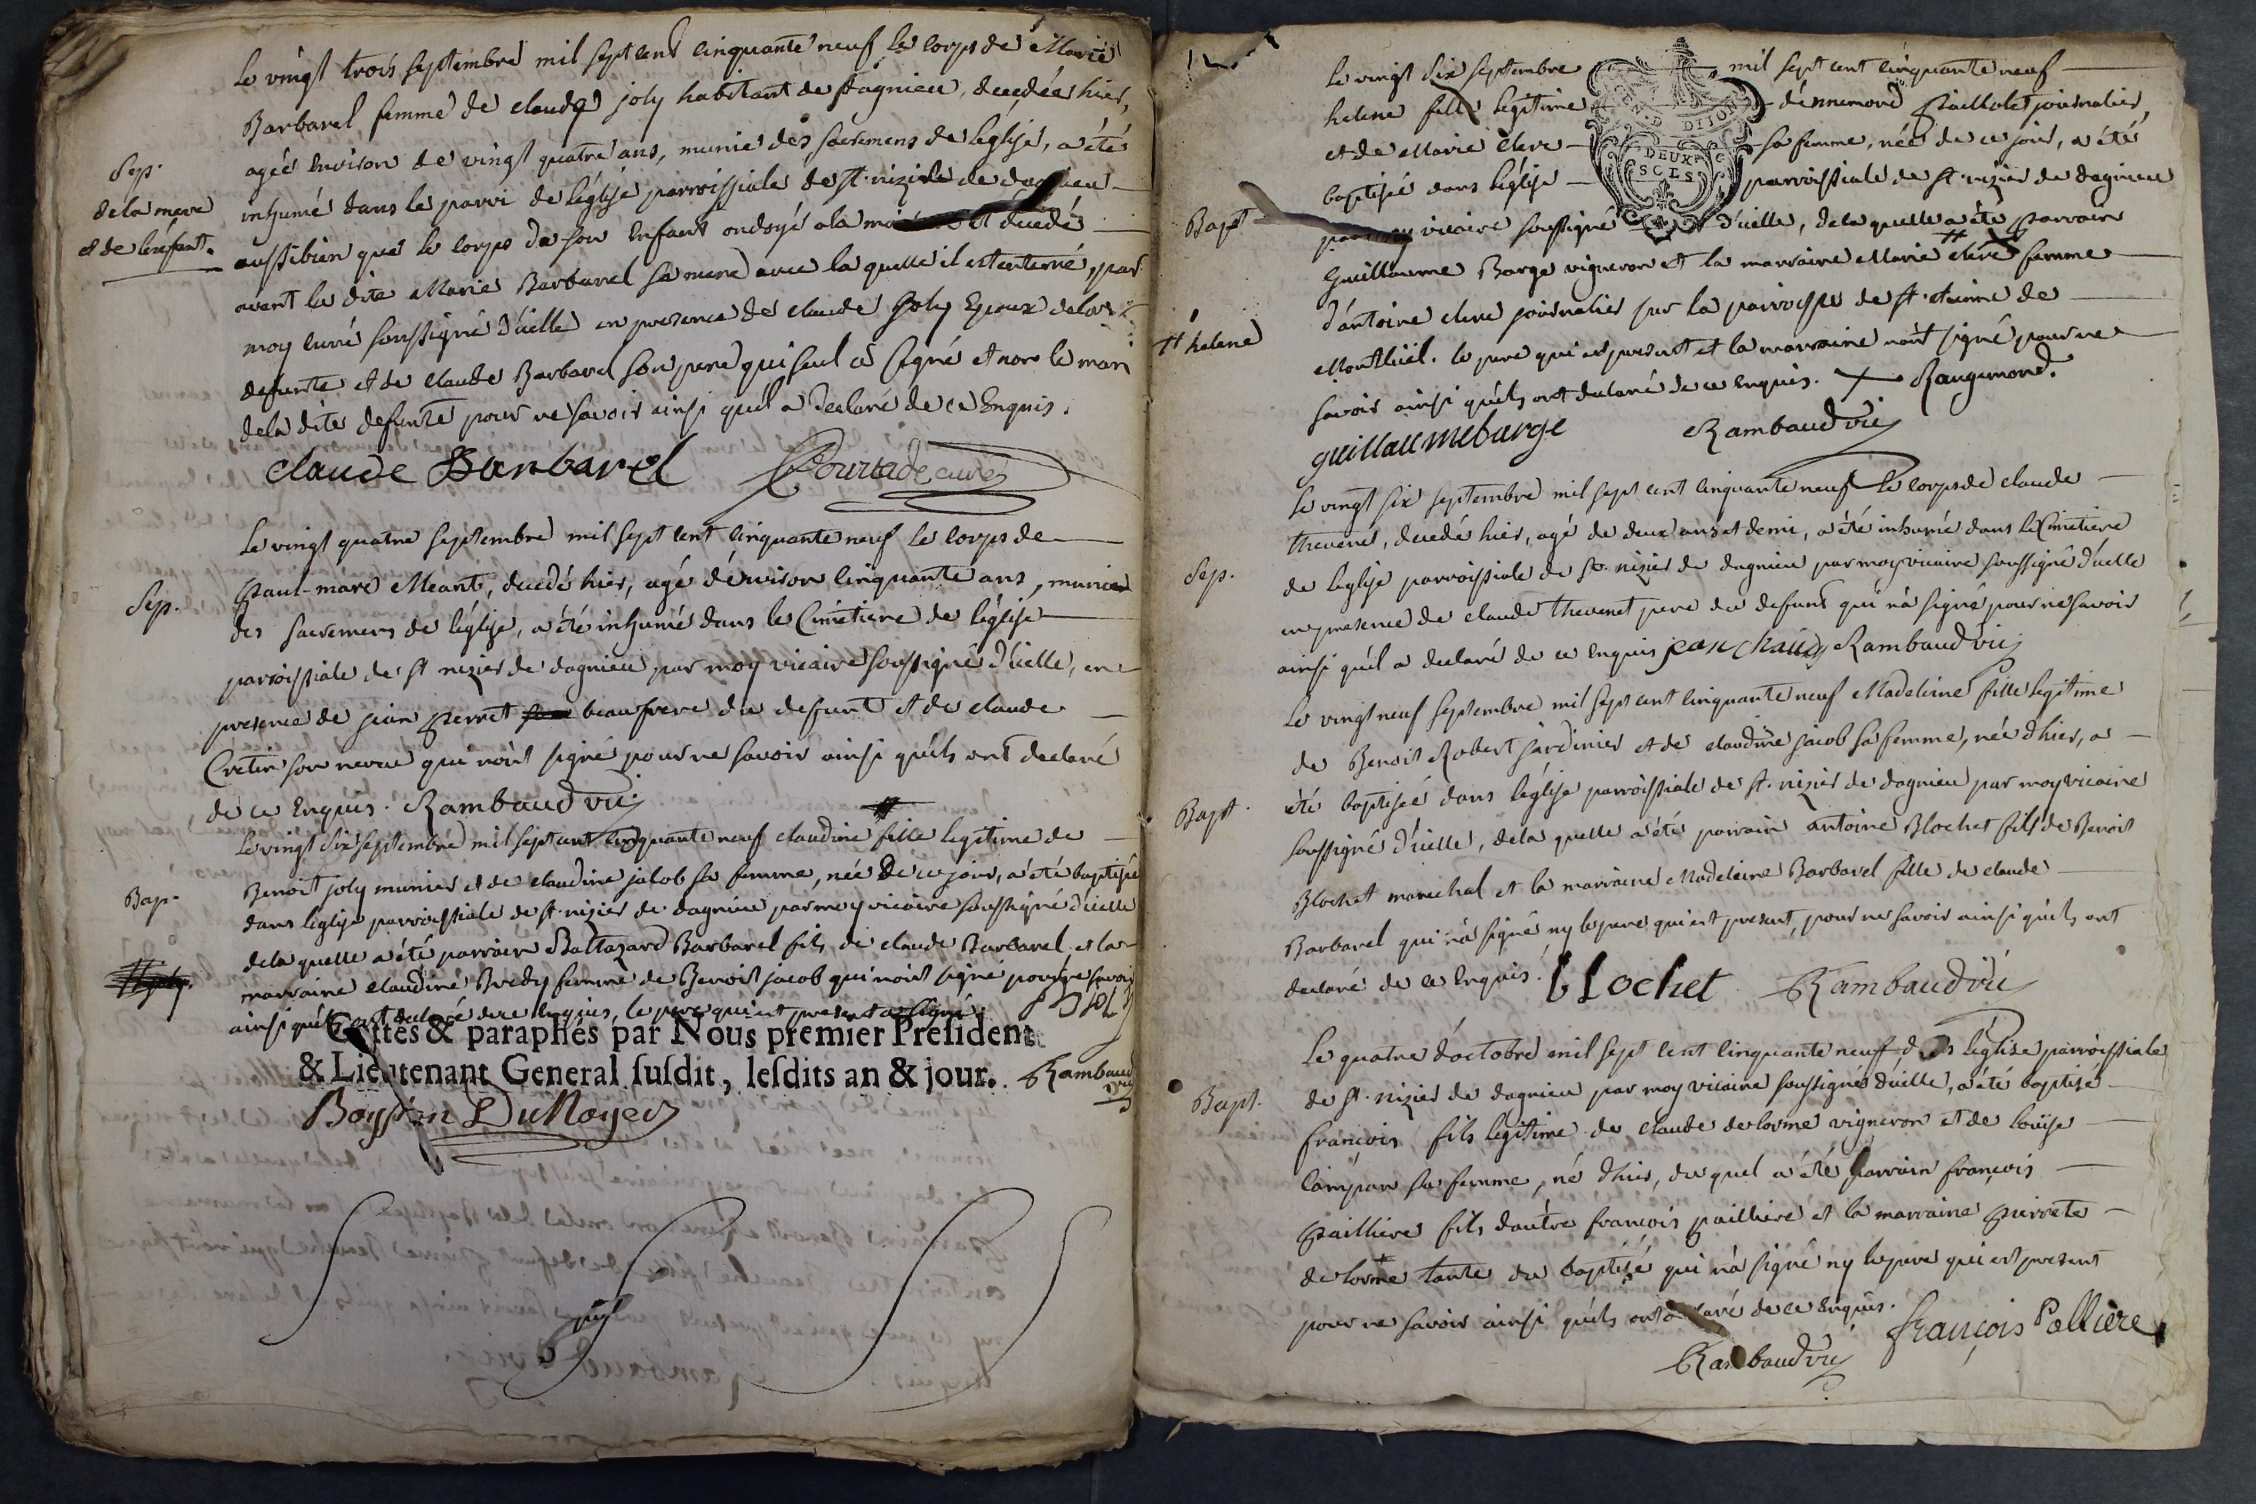 Le vingt trois septembre mil sept cent cinquante neuf le corps de Marie
Barbarel femme de claude joly habitant de dagnieu, decedée hier,
agée environ de vingt quatre ans, munie des sacremens de léglise, a été
Sep.
de la mere
et de lenfant.
inhumé dans le parvi de léglise parroissiale de st. nizier de dagnieu
aussibien que le corps de son enfant ondoyé a la et décedé
avant la dite Marie Barbarel sa mere avec la quelle il est enterré, par
moy curé soussigné d'icelle en presence de claude joly Epoux de la
defunte et de claude Barbarel son pere qui seul a signé et non le mari
de la dite defunte pour ne savoir ainsi quil a declaré de ce Enquis.
claude Barbarel curé
Le vingt quatre septembre mil sept cent cinquante neuf le corps de
Sep.
paul-marc Meant, decedé hier, agé d'environ cinquante ans, munie
des sacremens de léglise, a été inhumé dans le Cimetiere de léglise
parroissiale de st nizier de dagnieu par moy vicaire soussigné d'icelle, en
presence de jean perret beaufrere du defunt et de claude
Cretin son neveu qui nont signé pour ne savoir ainsi quils ont declaré
de ce Enquis. Rambaud vic
Le vingt six septembre mil sept cent cinquante neuf claudine # fille legitime de
Bap.
Benoit joly munier et de claudine jacob sa femme, née de ce jour, a été baptisée
dans léglise parroissiale de st. nizier de dagnieu par moy vicaire soussigné d'icelle
de la quelle a été parrain Baltazard Barbarel fils de claude Barbarel et la
marraine claudine Bredy femme de Benoit jacob qui nont signé pour ne savoir
ainsi quils ont declaré de ce enquis, le pere qui est present a signé.
B joly
Cottés & paraphés par Nous premier President
& Lieutenant General susdit, lesdits an & jour.
Rambaud
vic
Le vingt six septembre mil sept cent cinquante neuf
helene fille legitime dennemond paillolet journalier
et de Marie clere sa femme, née de ce jour, a été
baptisée dans léglise parroissiale de st. nizier de dagnieu
GEN. D. DIJON
DEUX
SOLS
Bapt
par moy vicaire soussigné d'icelle, de la quelle a été parrain
Guillaume Barge vigneron et la marraine Marie # clere femme
# helene
d'antoine clere journalier sur la parroisse de st. etienne de
Montluël. le pere qui est present et la marraine nont signé pour ne
savoir ainsi quils ont declaré de ce Enquis. Raugemond.
guillaumebarge Rambaud vic
Le vingt six septembre mil sept cent cinquante neuf le corps de claude
thevenet, decedé hier, agé de deux ans et demi, a été inhumé dans le Cimetiere
Sep.
de léglise parroissiale de st. nizier de dagnieu par moy vicaire soussigné d'icelle
en presence de claude thevenet pere du defunt qui n'a signé pour ne savoir
ainsi quil a declaré de ce enquis jean Rambaud vic
Le vingt neuf septembre mil sept cent cinquante neuf Madeleine fille legitime
de Benoit Robert jardinier et de claudine jacob sa femme, née d'hier, a
Bapt.
été baptisée dans léglise parroissiale de st. nizier de dagnieu par moy vicaire
soussigné d'icelle, de la quelle a été parrain antoine Blochet fils de Benoit
Blochet marechal et la marraine Madeleine Barbarel fille de claude
Barbarel qui n'a signé ny le pere qui est present, pour ne savoir ainsi quils ont
declaré de ce Enquis. bLochet Rambaud vic
Le quatre d'octobre mil sept cent cinquante neuf dans léglise parroissiale
Bapt.
de st. nizier de dagnieu par moy vicaire soussigné d'icelle, a été baptisé
françois fils legitime de claude delorme vigneron et de loüise
sa femme, né d'hier, du quel a été parrain françois
pailliere fils dautre françois pailliere et la marraine pierrette
delorme tante du baptisé qui n'a signé ny le pere qui est present
pour ne savoir ainsi quils ont declaré de ce Enquis.
Rambaud vic françois Palliere